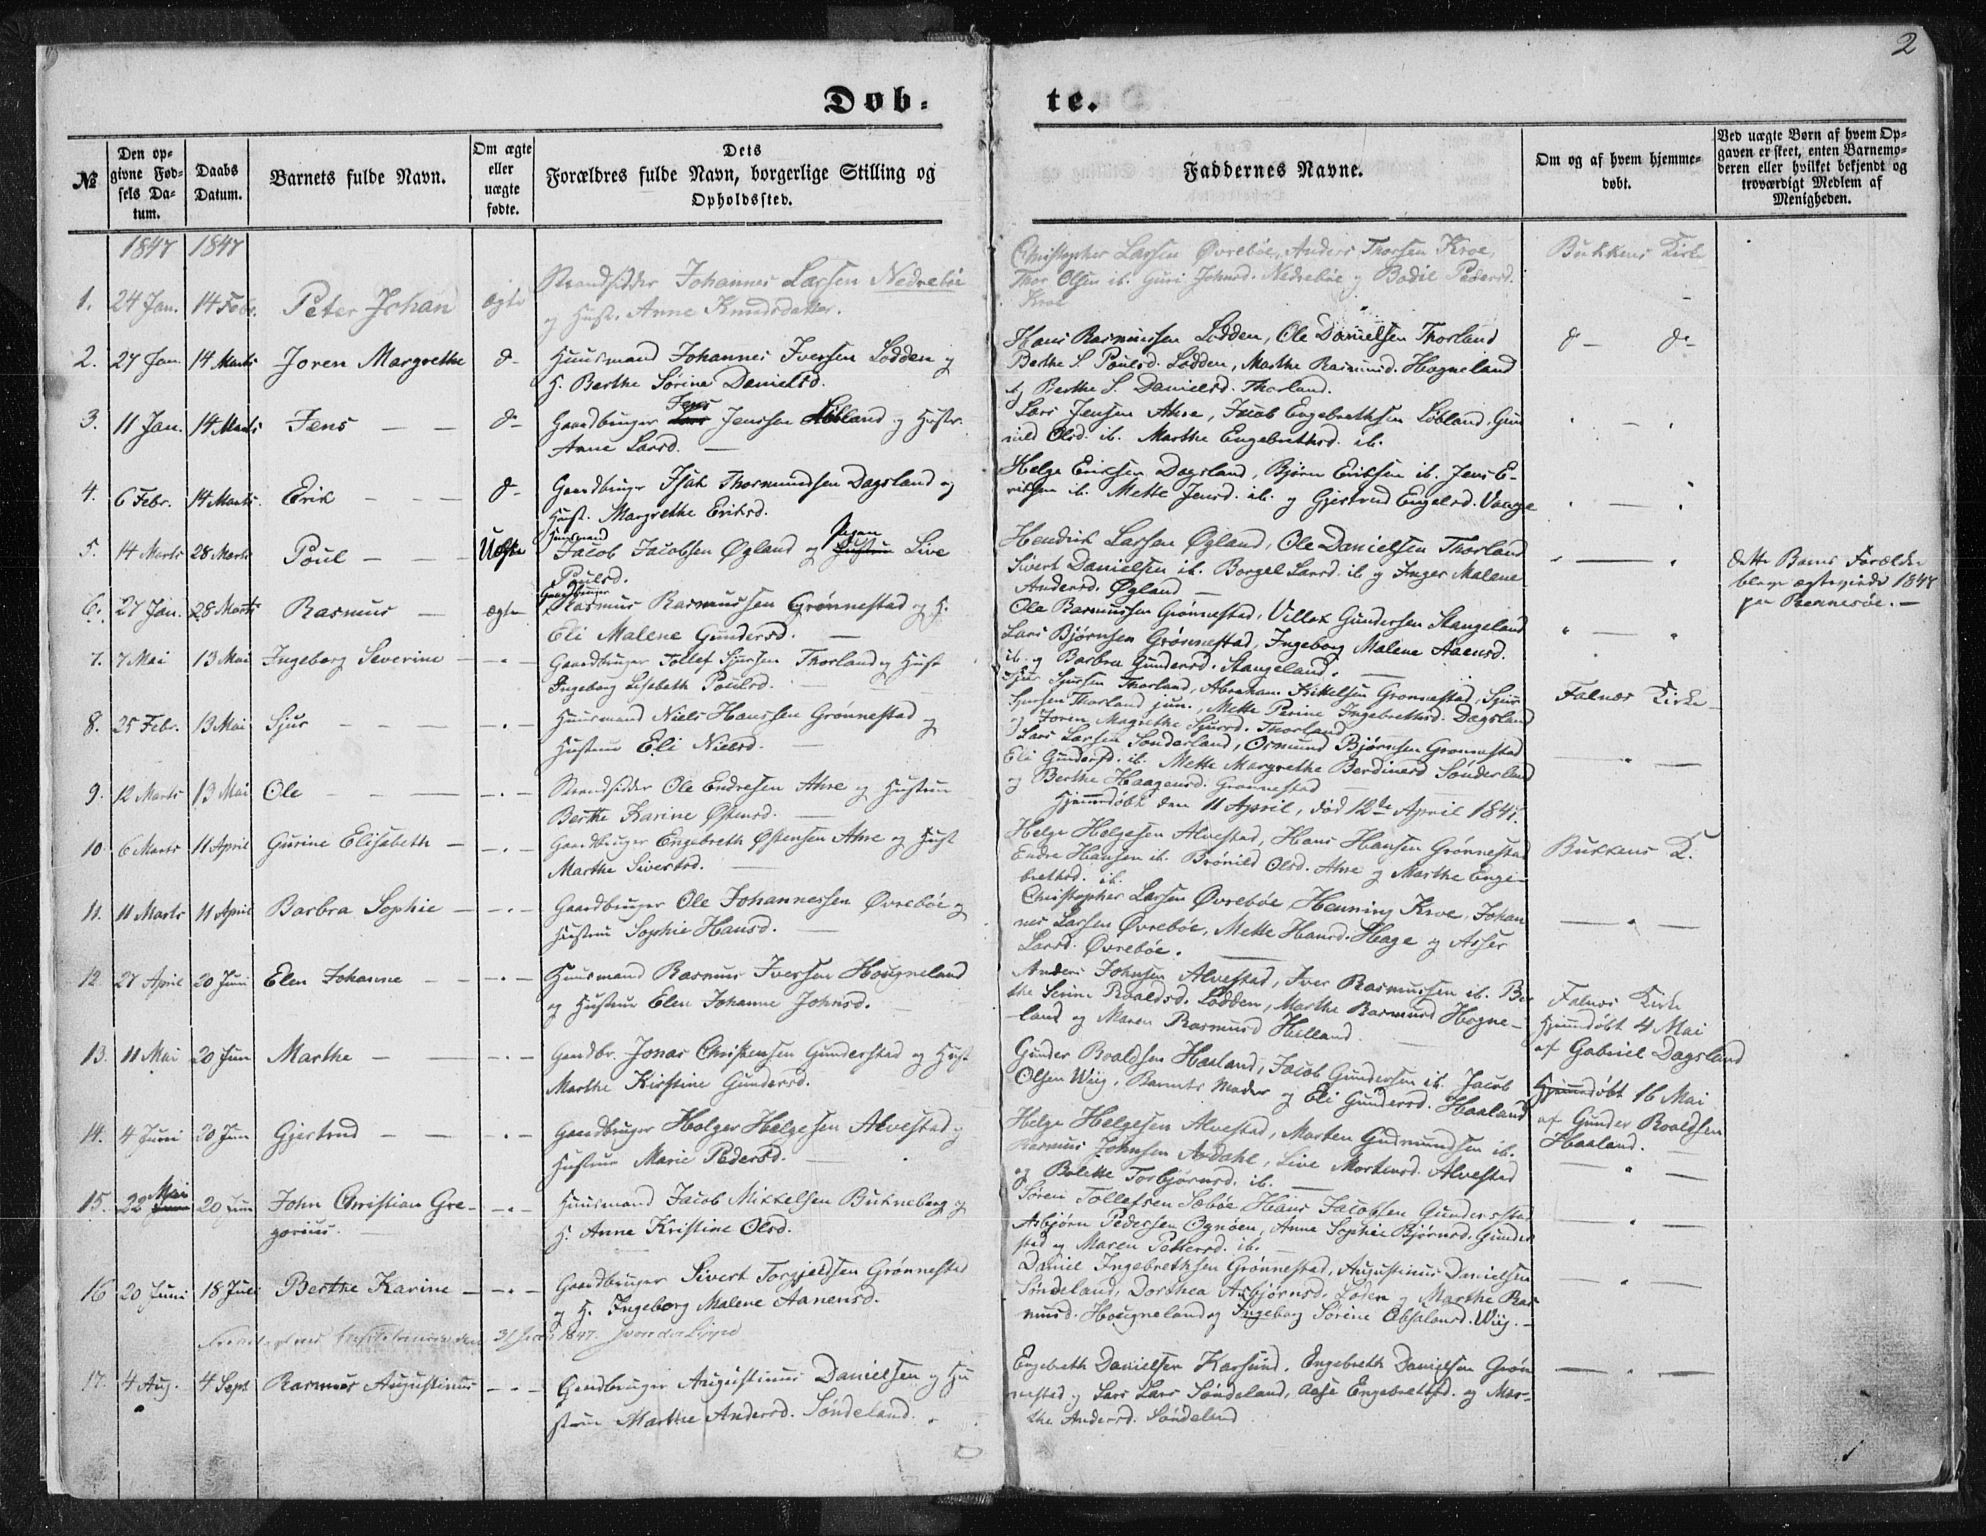 2
Døb-
te.
№
Den op-
givne Fød-
sels Da-
tum.
Daabs
Datum.
Barnets fulde Navn.
Om ægte
eller
uægte
fødte.
Dets
Forældres fulde Navn, borgerlige Stilling og
Opholdssted.
Faddernes Navne.
Om og af hvem hjemme-
døbt.
Ved uægte Børn af hvem Op-
gaven er skeet, enten Barnemo-
deren eller hvilket bekjendt og
troværdigt Medlem af
Menigheden.
1847 1847
1. 24 Jan. 14 Febr. Peter Johan ægte
Strandsidder Johannes Larsen Nedrebøe
og Hust. Anne Knudsdatter.
Christopher Larsen Øvrebøe, Anders Thorsen Kroe,
Thor Olsen ib. Guri Johnsd. Nedrebøe og Bodil Pedersd.
Kroe
Bukkens Kirke
2. 27 Jan. 14 Marts Joren Margrethe d-
Huusmand Johannes Iversen Lodden og
H. Berthe Sørine Danielsd.
Hans Rasmussen Lodden, Ole Danielsen Thorland
Berthe S. Poulsd. Lodden, Marthe Rasmusd. Hogneland
og Berthe S. Danielsd. Thorland.
d- d-
3. 11 Jan. 14 Marts Jens — — d-
Gaardbruger Jens Jenssen Løbland og Hustr.
Anne Larsd. —
Lars Jensen Ahre, Jacob Engebrethsen Løbland, Gun
nild Olsd. ib. Marthe Engebrethsd. ib.
4. 6 Febr. 14 Marts. Erik — — — d-
Gaardbruger Isak Thormundsen Dagsland og
Hust. Margrethe Eriksd.
Helge Eriksen Dagsland, Bjørn Eriksen ib. Jens E-
riksen ib. Mette Jensd. ib. og Gjertrud Engelsd. Vaage
5. 14 Marts 28 Marts Poul — — — Uægte
Huusmand
Jacob Jacobsen Øgland og Pigen Hustru Live
Poulsd.
Hendrik Larsen Øgland, Ole Danielsen Thorland
Sivert Danielsen ib. Borgel Larsd. ib. og Inger Malene
Andersd. Øgland —
dette Barns Forældre
bleve ægteviede 1848
paa Rennesøe. —
6. 27 Jan. 28 Marts Rasmus — ægte
Gaardbruger
Rasmus Rasmussen Grønnestad og H.
Eli Malene Gundersd. —
Ole Rasmussen Grønnestad, Villok Gundersen Stangeland
Lars Bjørnsen Grønnestad, Ingeborg Malene Aaensd.
ib. og Barbra Gundersd. Stangeland.
7. 7 Mai 13 Mai Ingeborg Severine — - . -
Gaardbruger Tollef Sjursen Thorland og Hust
Ingeborg Lisabeth Poulsd. —
Sjur Sjursen Thorland, Abraham Mikkelsen Grønnestad, Sjur
Sjursen Thorland jun., Mette Perine Ingebrethsd. Dagsland
og Joren Magrethe Sjursd. Thorland
Falnæs Kirke
8. 25 Febr. 13 Mai Sjur — — — — - . -
Huusmand Niels Hanssen Grønnestad og
Hustrue Eli Nielsd. —
Lars Larsen Sønderland, Osmund Bjørnsen Grønnestad
Eli Gundersd. ib. Mette Margrethe Berdinesd Sønderland
og Berthe Haagensd. Grønnestad
9. 12 Marts 13 Mai Ole — — — - . -
Strandsidder Ole Endresen Ahre og Hustrue
Berthe Karine Østensd. —
Hjemmedøbt den 11 April, død 12te April 1847.
10. 6 Marts 11 April Gurine Elisabeth — - . -
Gaardbruger Engebreth Østensen Ahre og Hust
Marthe Sivertsd. —
Helge Helgesen Alvestad, Hans Hansen Grønnestad
Endre Hansen ib. Brønild Olsd. Ahre og Marthe Enge-
brethsd. ib.
Bukkens K.
11. 11 Marts 11 April Barbra Sophie — - . -
Gaardbruger Ole Johannessen Øvrebøe og
Hustrue Sophie Hansd. —
Christopher Larsen Øvrebøe, Henning Kroe, Johan
nes Larsen Øvrebøe, Mette Hansd. Hage og Asser
Larsd. Øvrebøe. —
12. 27 April 20 Juni Elen Johanne — - . -
Huusmand Rasmus Iversen Hougneland
og Hustrue Elen Johanne Johnsd. —
Anders Johnsen Alvestad, Iver Rasmussen ib. Ber
the Serine Roaldsd. Lodden, Marthe Rasmusd Hogne-
land og Maren Rasmusd Helland.
Falnæs Kirke
Hjemmdøbt 4 Mai
af Gabriel Dagsland
13. 11 Mai 20 Jun Marthe — — - . -
Gaardbr. Jonas Christensen Gunderstad og Hust
Marthe Kirstine Gundersd.
Gunder Roaldsen Haaland, Jacob Gundersen ib. Jacob
Olsen Wiig, Barnets Moder og Eli Gundersd. Haaland
Hjemmdøbt 16 Mai
af Gunder Roaldsen
Haaland.
14. 4 Juni 20 Jun Gjertrud — — - . -
Gaardbruger Holger Helgesen Alvestad og
Hustrue Marie Pedersd. —
Helge Helgesen Alvestad, Morten Gudmundsen ib.
Rasmus Johnsen Ardahl, Live Mortensd. Alvestad
og Bolette Torbjørnsd. ib. —
15. 22 Mai Juni 20 Jun John Christian Gre-
gorius. — - . -
Huusmand Jacob Mikkelsen Bukneberg og
H. Anne Kristine Olsd.
Søren Tollefsen Sæbøe Hans Jacobsen Gunderstad
Asbjørn Pedersen Ognøen, Anne Sophie Bjørnsd. Gunder
stad og Maren Pettersd. ib. —
16 20 Juni 18 Juli Berthe Karine — - . -
Gaardbruger Sivert Torgjeldsen Grønnestad
og H. Ingeborg Malene Aanensd.
Daniel Ingebrethsen Grønnestad, Augustinus Danielsen
Søndeland, Dorthea Asbjørnsd. Løsen og Marthe Ras-
musd. Hougneland og Ingeborg Sørine Absalonsd. Wiig. —
1847.
17. 4 Aug. 4 Sept Rasmus Augustinus - . -
Gaardbruger Augustinus Danielsen og Hu
strue Marthe Andersd. Søndeland.
Engebreth Danielsen Karsund, Engebreth Danielsen Grøn
nestad og Lars Lars Søndeland, Aase Engebrethsd. og Mar-
the Andersd. Søndeland